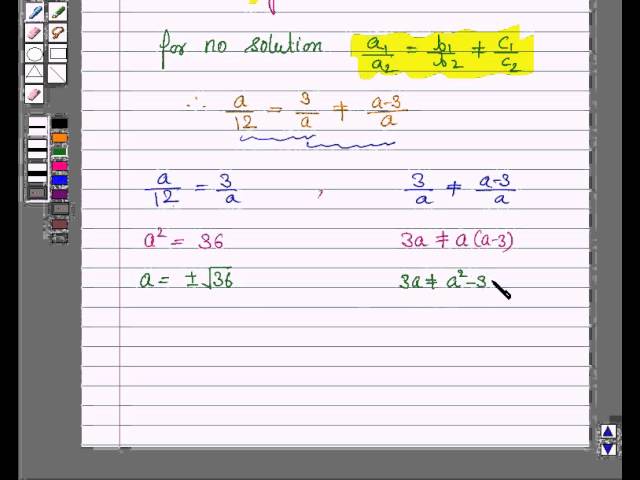 for no solution a₁/a₂ = b₁/b₂ ≠ c₁/c₂
∴ a/12 = 3/a ≠ a-3/a
a/12 = 3/a , 3/a ≠ a-3/a
a² = 36 3a ≠ a(a-3)
a = ±√36 3a ≠ a²-3